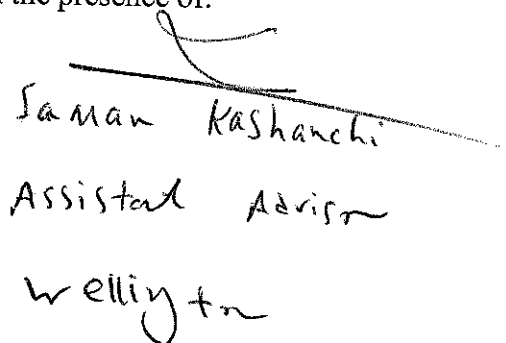 the presence of:
Saman Kashanchi
Assistant Advisor
Wellington